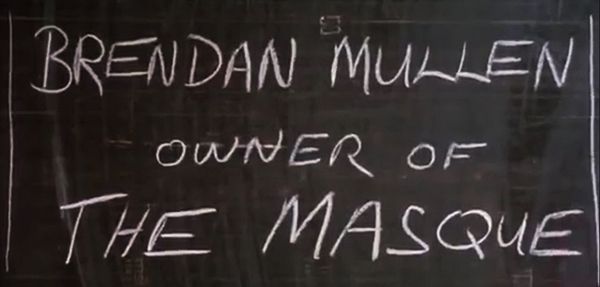 BRENDAN MULLEN
OWNER OF
THE MASQUE